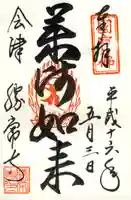 奉拝
平成十六年
五月三日
薬師如来
会津 勝常寺